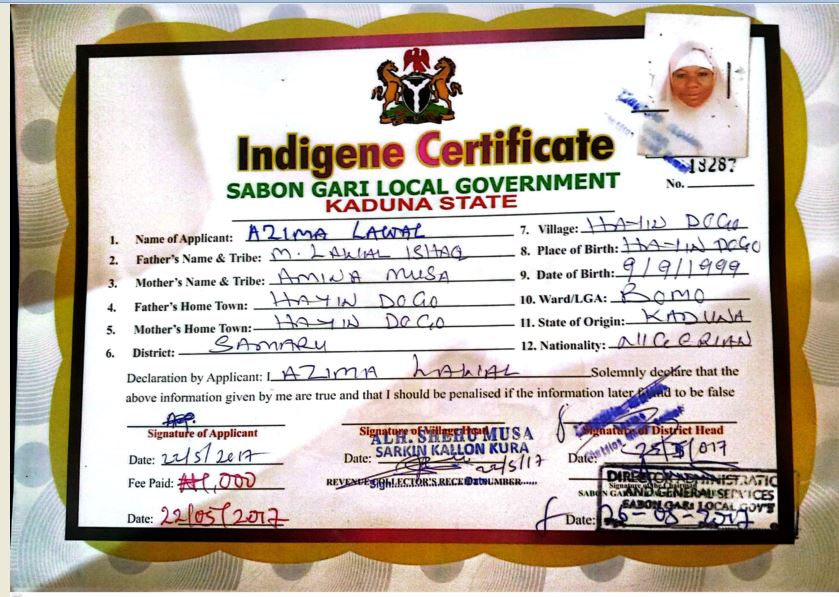 Indigene Certificate
SABON GARI LOCAL GOVERNMENT
KADUNA STATE
No. 18287
1. Name of Applicant: AZIMA LAWAL
2. Father's Name & Tribe: M. LAWAL ISHAQ
3. Mother's Name & Tribe: AMINA MUSA
4. Father's Home Town: HAYIN DOGO
5. Mother's Home Town: HAYIN DOGO
6. District: SAMARU
7. Village: HAYIN DOGO
8. Place of Birth: HAYIN DOGO
9. Date of Birth: 9/9/1999
10. Ward/LGA: BOMO
11. State of Origin: KADUNA
12. Nationality: NIGERIAN
Declaration by Applicant: I AZIMA LAWAL Solemnly declare that the
above information given by me are true and that I should be penalised if the information later found to be false
Signature of Applicant
Date: 22/5/2017
Fee Paid: ₦1,000
Date: 22/05/2017
Signature of Village Head
ALH. SHEHU MUSA
SARKIN KALLON KURA
Date: 22/5/17
REVENUE COLLECTOR'S RECEIPT NUMBER......
Signature of District Head
Date:
DIRECTOR ADMINISTRATIO
Signature of the Chairman
AND GENERAL SERVICES
SABON GARI LOCAL GOVT
Date: